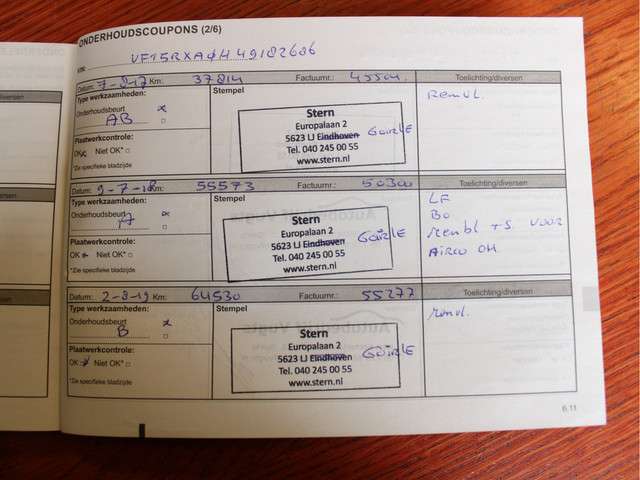 ONDERHOUDSCOUPONS (2/6)
VIN: VF15RXA0H49182606
Datum: 7-8-17 Km: 37814 Factuurnr.: 45504 Toelichting/diversen
Type werkzaamheden: Stempel Remvl.
Onderhoudsbeurt x
AB □
Plaatwerkcontrole:
OK x Niet OK* □
*Zie specifieke bladzijde
Stern
Europalaan 2
5623 LJ Eindhoven Goirle
Tel. 040 245 00 55
www.stern.nl
Datum: 9-7-18 Km: 55573 Factuurnr.: 50300 Toelichting/diversen
Type werkzaamheden: Stempel
Onderhoudsbeurt x
A □
Plaatwerkcontrole:
OK x Niet OK* □
*Zie specifieke bladzijde
Stern
Europalaan 2
5623 LJ Eindhoven Goirle
Tel. 040 245 00 55
www.stern.nl
LF
Bo
Rembl +S. voor
Airco OH
Datum: 2-8-19 Km: 64530 Factuurnr.: 55277 Toelichting/diversen
Type werkzaamheden: Stempel Remvl.
Onderhoudsbeurt x
B □
Plaatwerkcontrole:
OK x Niet OK* □
*Zie specifieke bladzijde
Stern
Europalaan 2
5623 LJ Eindhoven Goirle
Tel. 040 245 00 55
www.stern.nl
6.11